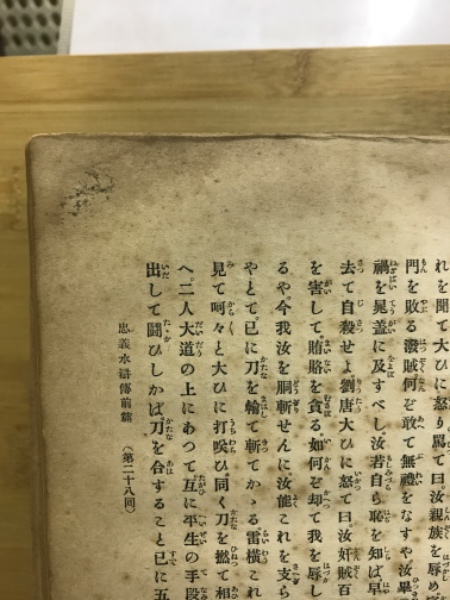 れを聞て大ひに怒り罵て曰。汝親族を辱め
門を敗る潑賊何ぞ敢て無禮をなすや汝畢
禍を晁盖に及すべし。汝若自ら恥を知ば早
去て自殺せよ。劉唐大ひに怒て曰。汝奸賊百
を害して賄賂を貪る如何ぞ却て我を辱し
るや。今我汝を胴斬せんに。汝能これを支ら
やとて。已に刀を輪て斬てかゝる雷横これ
見て呵々と大ひに打咲ひ。同く刀を撚て相
へ。二人大道の上にあつて。互に平生の手段
出して鬪ひしかば。刀を合すること已に五
忠義水滸傳前篇　（第二十八回）